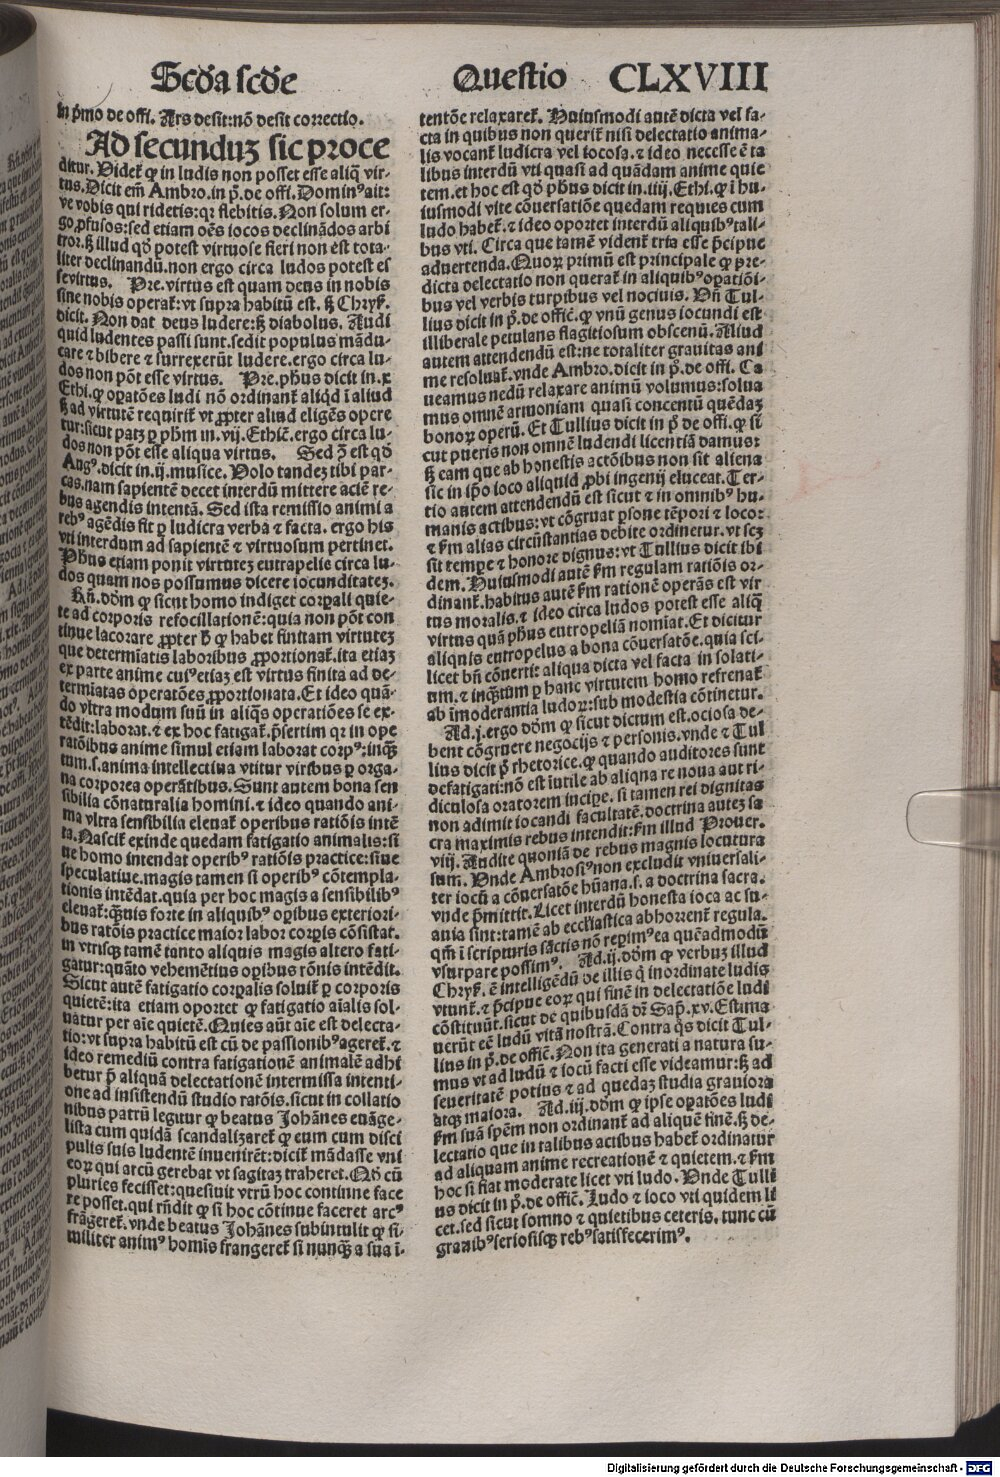 Scd̄a scd̄e
Questio CLXVIII
in p̄mo de offi. Ars desit: nō desit correctio.
Ad secunduʒ sic proce
ditur. Videt᷑ ꝙ in ludis non posset esse aliq̄ vir-
tus. Dicit em̄ Ambro. in p̄. de offi. Dominꝰ ait:
ve vobis qui ridetis: qr flebitis. Non solum er-
go ꝓfusos: sed etiam oēs iocos declinādos arbi
tror. ſʒ illud qd̄ potest virtuose fieri non est tota-
liter declinandū. non ergo circa ludos potest es
se virtus. Pre. virtus est quam deus in nobis
sine nobis operat᷑: vt supra habitū est. ſʒ Chrys̄.
dicit. Non dat deus ludere: ſʒ diabolus. Audi
quid ludentes passi sunt. sedit populus mādu-
care ⁊ bibere ⁊ surrexerūt ludere. ergo circa lu-
dos non pōt esse virtus. Pre. ph̄us dicit in .x
Ethi. ꝙ oꝑatōes ludi nō ordinant᷑ ad aliqd̄ ī aliud
ſʒ ad virtutē requirit᷑ vt ꝓpter aliud eligēs opere
tur: sicut patʒ ꝑ ph̄m in .vij. Ethic̄. ergo circa lu-
dos non pōt esse aliqua virtus. Sed ꝯ̄ est qd̄
Augꝰ. dicit in .ij. musice. Volo tandeʒ tibi par-
cas. nam sapientē decet interdū mittere aciē re-
bus agendis intentā. Sed ista remissio animi a
rebꝰ agēdis fit ꝑ ludicra verba ⁊ facta. ergo his
vti interdum ad sapientē ⁊ virtuosum pertinet.
Ph̄us etiam ponit virtuteʒ eutrapelie circa lu-
dos quam nos possumus dicere iocunditateʒ.
Rn̄. dd̄m ꝙ sicut homo indiget corꝑali quie-
te ad corporis refocillationē: quia non pōt con
tinue lacorare ꝓpter h̄ ꝙ habet finitam virtuteʒ
que determīatis laboribus ꝓportionat᷑. ita etiaʒ
ex parte anime cuiꝰ etiaʒ est virtus finita ad de-
termīatas operatōes ꝓportionata. Et ideo quā-
do vltra modum suū in aliq̄s operatiōes se ex-
tēdit: laborat. ⁊ ex hoc fatigat᷑. p̄sertim qr in ope
ratōibus anime simul etiam laborat corpꝰ: inqʒ
tum .s. anima intellectiua vtitur viribus ꝑ orga-
na corporea operātibus. Sunt autem bona sen
sibilia cōnaturalia homini. ⁊ ideo quando ani-
ma vltra sensibilia eleuat᷑ operibus ratiōis intē
ta. Nascit᷑ exinde quedam fatigatio animalis: si
ue homo intendat operibꝰ ratiōis practice: siue
speculatiue. magis tamen si operibꝰ cōtempla-
tionis intēdat. quia per hoc magis a sensibilibꝰ
eleuat᷑: qʒuis forte in aliquibꝰ oꝑibus exteriori-
bus ratōis practice maior labor corꝑis cōsistat.
in vtrisqʒ tamē tanto aliquis magis altero fati-
gatur: quāto vehemētius oꝑibus rōnis intēdit.
Sicut autē fatigatio corꝑalis soluit᷑ ꝑ corporis
quietē: ita etiam oportet ꝙ fatigatio aīalis sol-
uatur per aīe quietē. Quies aūt aīe est delecta-
tio: vt supra habitū est cū de passionibꝰ ageret᷑. ⁊
ideo remediū contra fatigationē animalē adhi
betur p̄ aliquā delectationē intermissa intenti-
one ad insistendū studio ratōis. sicut in collatio
nibus patrū legitur ꝙ beatus Johānes euāge-
lista cum quidā scandalizaret᷑ ꝙ eum cum disci
pulis suis ludentē inuenirēt: dicit᷑ mādasse vni
eorꝝ qui arcū gerebat vt sagitaʒ traheret. Qd̄ cū
pluries fecisset: quesiuit vtrū hoc continue face
re posset. qui rn̄dit ꝙ si hoc cōtinue faceret arcꝰ
frāgeret᷑. vnde beatus Johānes subintulit ꝙ si-
militer animꝰ homīs frangeret᷑ si nunqʒ a sua ī-
tentōe relaxaret᷑. Huiusmodi autē dicta vel fa-
cta in quibus non querit᷑ nisi delectatio anima-
lis vocant᷑ ludicra vel iocosa. ⁊ ideo necesse ē ta
libus interdū vti quasi ad quādam anime quie
tem. et hoc est qd̄ ph̄us dicit in .iiij. Ethi. ꝙ ī hu-
iusmodi vite cōuersatiōe quedam requies cum
ludo habet᷑. ⁊ ideo oportet interdū aliquibꝰ tali-
bus vti. Circa que tamē vident᷑ tria esse p̄cipue
aduertenda. Quorꝝ primū est principale ꝙ pre-
dicta delectatio non querat᷑ in aliquibꝰ oꝑatiōi-
bus vel verbis turpibus vel nociuis. Vn̄ Tul-
lius dicit in p̄. de offic̄. ꝙ vnū genus iocundi est
illiberale petulans flagitiosum obscenū. Aliud
autem attendendū est: ne totaliter grauitas ani
me resoluat᷑. vnde Ambro. dicit in p̄. de offi. Ca
ueamus nedū relaxare animū volumus: solua
mus omnē armoniam quasi concentū quēdaʒ
bonorꝝ operū. Et Tullius dicit in p̄ de offi. ꝙ si
cut pueris non omnē ludendi licentiā damus:
ſʒ eam que ab honestis actōibus non sit aliena
sic in ip̄o ioco aliquid ꝓbi ingenij eluceat. Ter-
tio autem attendendū est sicut ⁊ in omnibꝰ hu-
manis actibus: vt cōgruat ꝑsone tēpori ⁊ loco:
⁊ ẜm alias circūstantias debite ordinetur. vt scʒ
sit tempe ⁊ honore dignus: vt Tullius dicit ibi
dem. Huiusmodi autē ẜm regulam ratiōis or-
dinant᷑. habitus autē ẜm rationē operās est vir
tus moralis. ⁊ ideo circa ludos potest esse aliq̄
virtus quā ph̄us eutropeliā nomīat. Et dicitur
aliquis eutropelus a bona cōuersatōe. quia sci-
licet bn̄ cōuertit aliqua dicta vel facta in solati-
um. ⁊ inqʒtum ꝑ hanc virtutem homo refrenat᷑
ab īmoderantia ludorꝝ: sub modestia cōtinetur.
Ad .j. ergo dd̄m ꝙ sicut dictum est. ociosa de-
bent cōgruere negocijs ⁊ personis. vnde ⁊ Tul
lius dicit p̄ rhetorice. ꝙ quando auditores sunt
defatigati: nō est īutile ab aliqua re noua aut ri-
diculosa oratorem incipe. si tamen rei dignitas
non adimit iocandi facultatē. doctrina auteʒ sa
cra maximis rebus intendit: ẜm illud Prouer.
viij. Audite quoniā de rebus magnis locutura
sum. Vnde Ambrosiꝰ non excludit vniuersali-
ter iocū a cōuersatōe hūana .s. a doctrina sacra.
vnde p̄mittit. Licet interdū honesta ioca ac su-
auia sint: tamē ab eccl̄iastica abhorrent regula.
qm̄ ī scripturis sāctis nō reꝑimꝰ ea quēadmodū
vsurpare possimꝰ. Ad .ij. dd̄m ꝙ verbuʒ illud
Chrys̄. ē intelligēdū de illis q̄ inordinate ludis
vtunt᷑. ⁊ p̄cipue eorꝝ qui finē in delectatiōe ludi
cōstituūt. sicut de quibusdā dr̄ Sap̄. xv. Estima
uerūt eē ludū vitā nostrā. Contra qd̄s dicit Tul-
lius in p̄. de offic̄. Non ita generati a natura su-
mus vt ad ludū ⁊ iocū facti esse videamur: ſʒ ad
seueritatē potius ⁊ ad quedaʒ studia grauiora
atqʒ maiora. Ad .iij. dd̄m ꝙ ipse oꝑatōes ludi
ẜm suā spēm non ordinant᷑ ad aliquē finē. ſʒ de-
lectatio que in talibus actibus habet᷑ ordinatur
ad aliquam anime recreationē ⁊ quietem. ⁊ ẜm
hoc si fiat moderate licet vti ludo. Vnde Tulli
us dicit in p̄. de offic̄. Ludo ⁊ ioco vti quidem li
cet. sed sicut somno ⁊ quietibus ceteris. tunc cū
grauibꝰ seriosisqʒ rebꝰ satisfecerimꝰ.
Digitalisierung gefördert durch die Deutsche Forschungsgemeinschaft - DFG